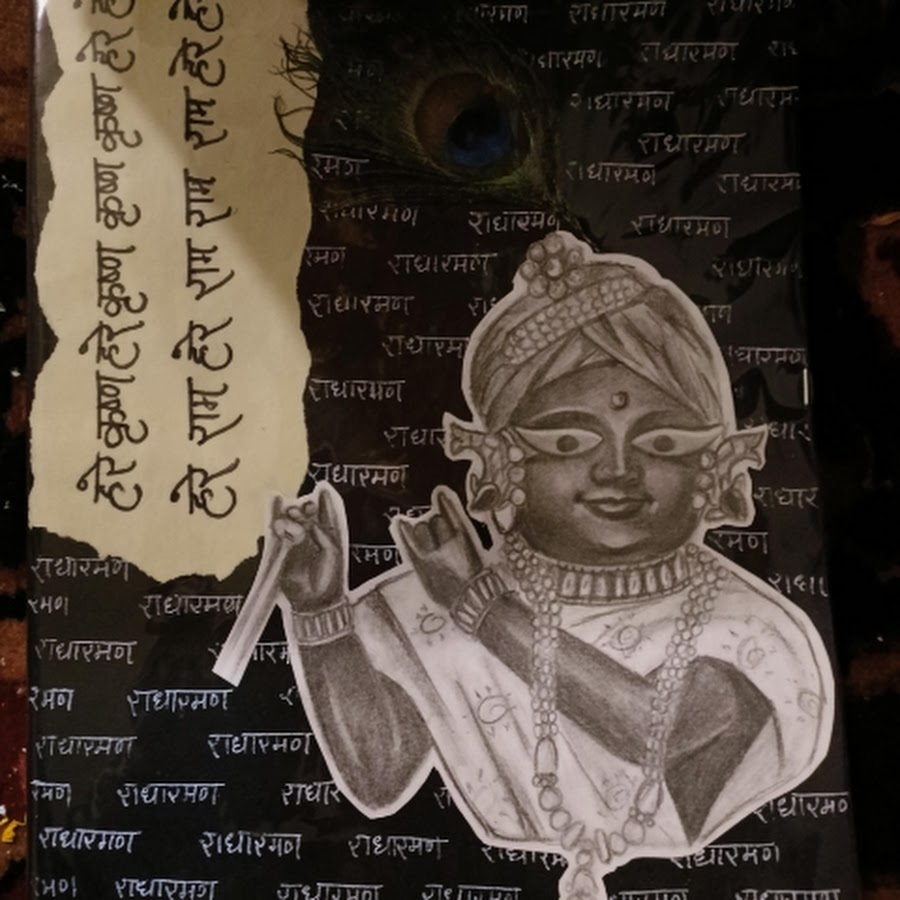 हरे कृष्ण हरे कृष्ण कृष्ण कृष्ण हरे
हरे राम हरे राम राम राम हरे
राधारमण
राधारमण
राधारमण
राधारमण
रमण राधारमण
राधारमण राधारमण राधारमण
रमण राधारमण राधारमण
राधारमण
राधारमण
राधारमण
रमण रमण
राधारमण
रमण राधारमण
राधारमण
रमण राधारमण
राधारमण राधारमण
रमण राधारमण राधार राधारमण
राधारमण राधारमण राधारमण राधारम राधारमण
रमण राधारमण राधारमण राधारमण राधारमण राधारमण